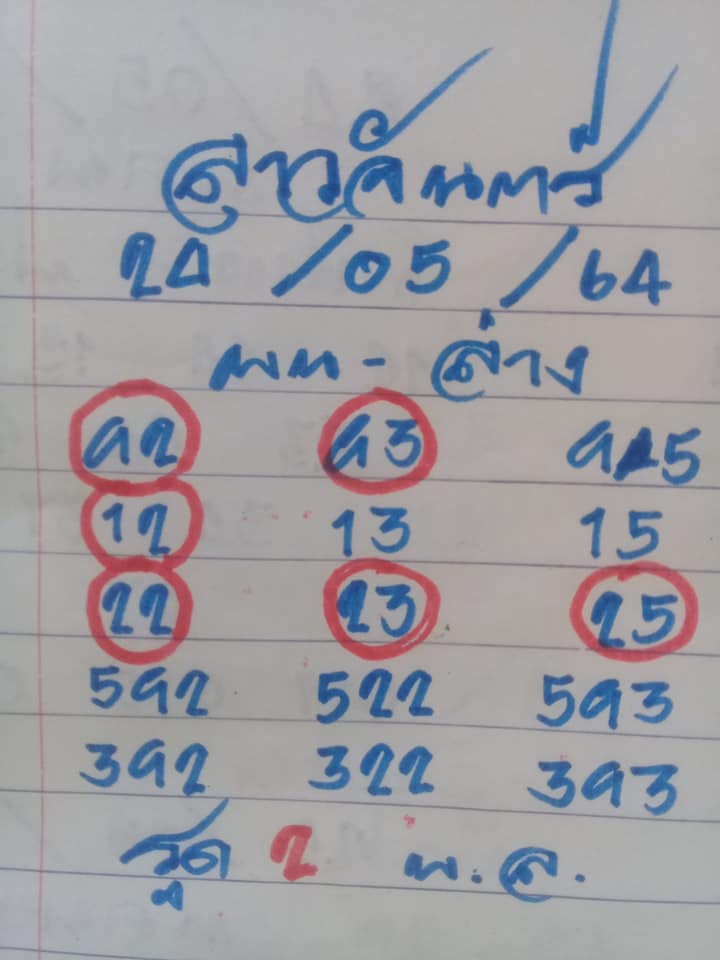 สาวจันทร์
24/05/64
บน - ล่าง
92 93 95
12 13 15
22 23 25
592 522 593
392 322 393
รูด 2 บ.ล.